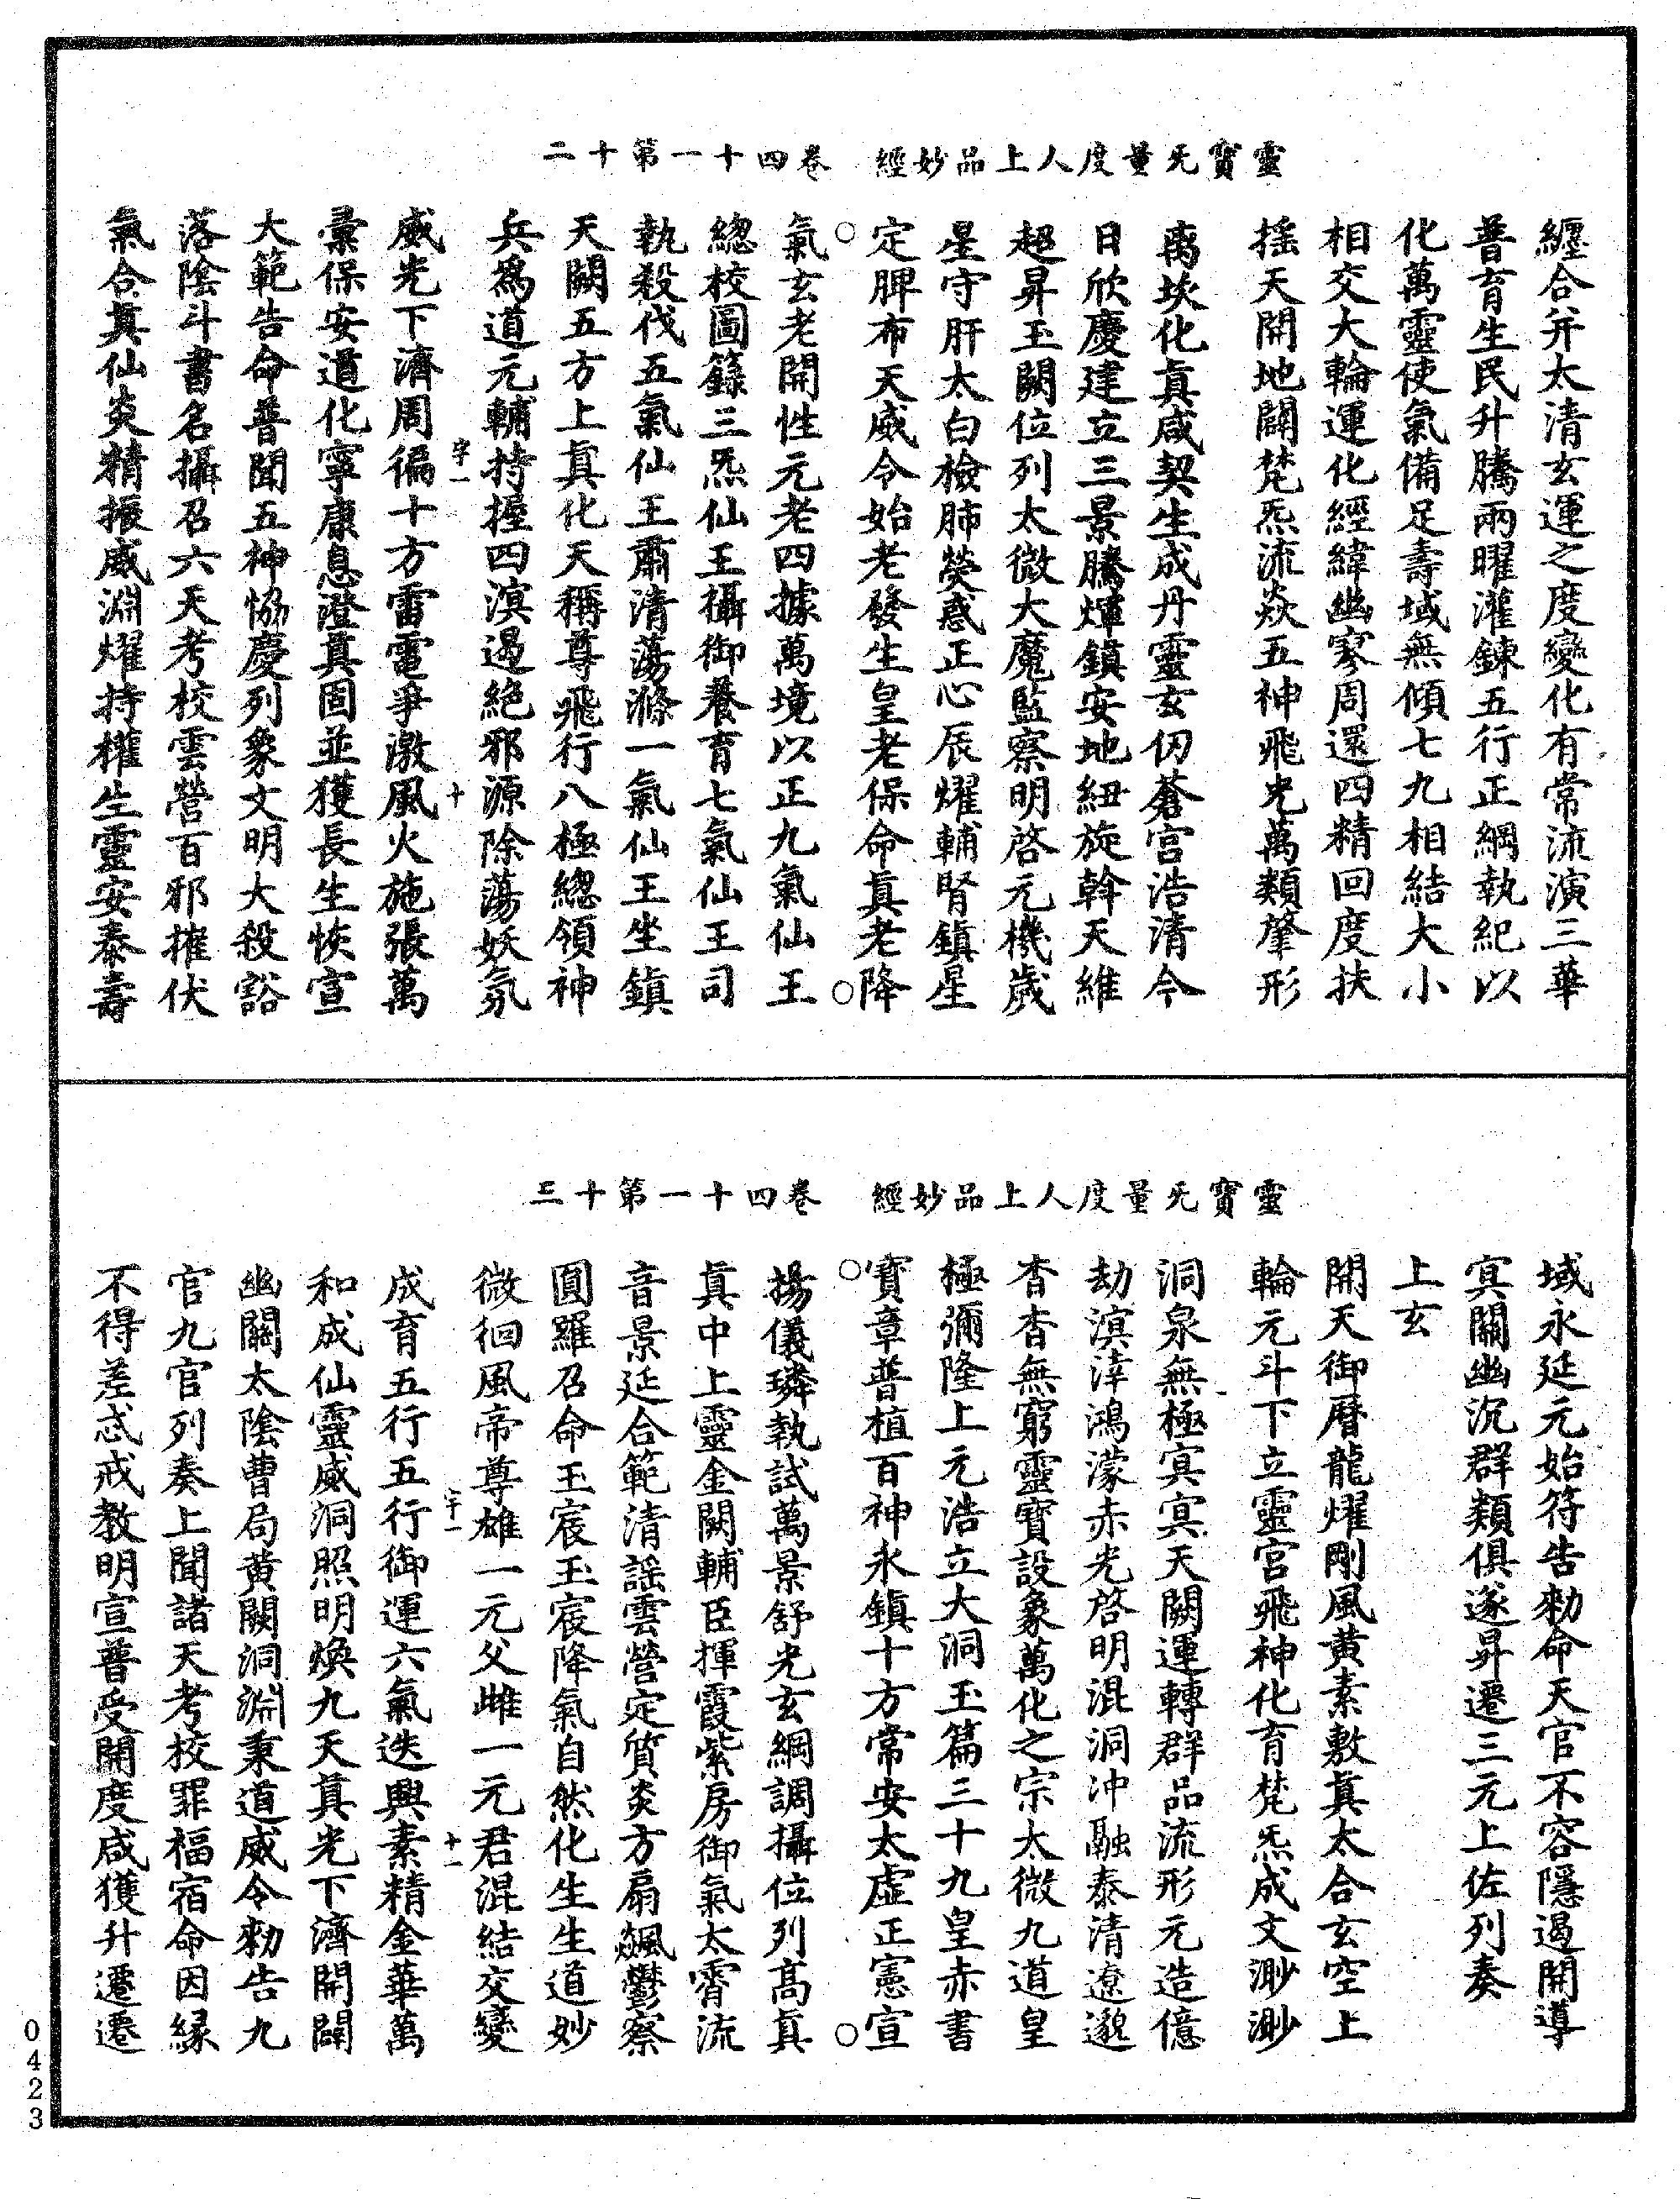 靈寶无量度人上品妙經　卷四十一第十二
纏合并太清玄運之度變化有常流演三華
普育生民升騰兩曜灌鍊五行正綱執紀以
化萬靈使氣備足壽域無傾七九相結大小
相交大輪運化經緯幽寥周還四精回度扶
搖天開地闢梵炁流焱五神飛光萬類肇形
离坎化真咸契生成丹靈玄仞蒼宮浩清今
日欣慶建立三景騰輝鎮安地紐旋斡天維
超昇玉闕位列太微大魔監察明啓元機歲
星守肝太白檢肺熒惑正心辰耀輔腎鎮星
定脾布天威令始老發生皇老保命真老降
氣玄老開性元老四據萬境以正九氣仙王
總校圖籙三炁仙王攝御養育七氣仙王司
執殺伐五氣仙王肅清蕩滌一氣仙王坐鎮
天關五方上真化天稱尊飛行八極總領神
兵爲道元輔持握四溟遏絕邪源除蕩妖氛
字一　十
威光下濟周徧十方雷電爭激風火施張萬
彙保安道化寧康息澄真固並獲長生恢宣
大範告命普聞五神恊慶列象文明大殺豁
落陰斗書名攝召六天考校雲營百邪摧伏
氣合真仙炎精振威淵耀持權生靈安泰壽
靈寶无量度人上品妙經　卷四十一第十三
域永延元始符告勑命天官不容隱遏開導
冥關幽沉群類俱遂昇遷三元上佐列奏
上玄
開天御曆龍耀剛風黃素敷真太合玄空上
輪元斗下立靈宮飛神化育梵炁成文渺渺
洞泉無極冥冥天關運轉群品流形元造億
劫溟涬鴻濛赤光啓明混洞冲融泰清遼邈
杳杳無窮靈寶設象萬化之宗太微九道皇
極彌隆上元浩立大洞玉篇三十九皇赤書
寶章普植百神永鎮十方常安太虛正憲宣
揚儀璘執試萬景舒光玄綱調攝位列高真
真中上靈金闕輔臣揮霞紫房御氣太霄流
音景延合範清謠雲營定質炎方扇飆鬱察
圓羅召命玉宸玉宸降氣自然化生生道妙
微徊風帝尊雄一元父雌一元君混結交變
字一　十一
成育五行五行御運六氣迭興素精金華萬
和成仙靈威洞照明煥九天真光下濟開闢
幽關太陰曹局黃闕洞淵秉道威令勑告九
官九官列奏上聞諸天考校罪福宿命因緣
不得差忒戒教明宣普受開度咸獲升遷遷
0423